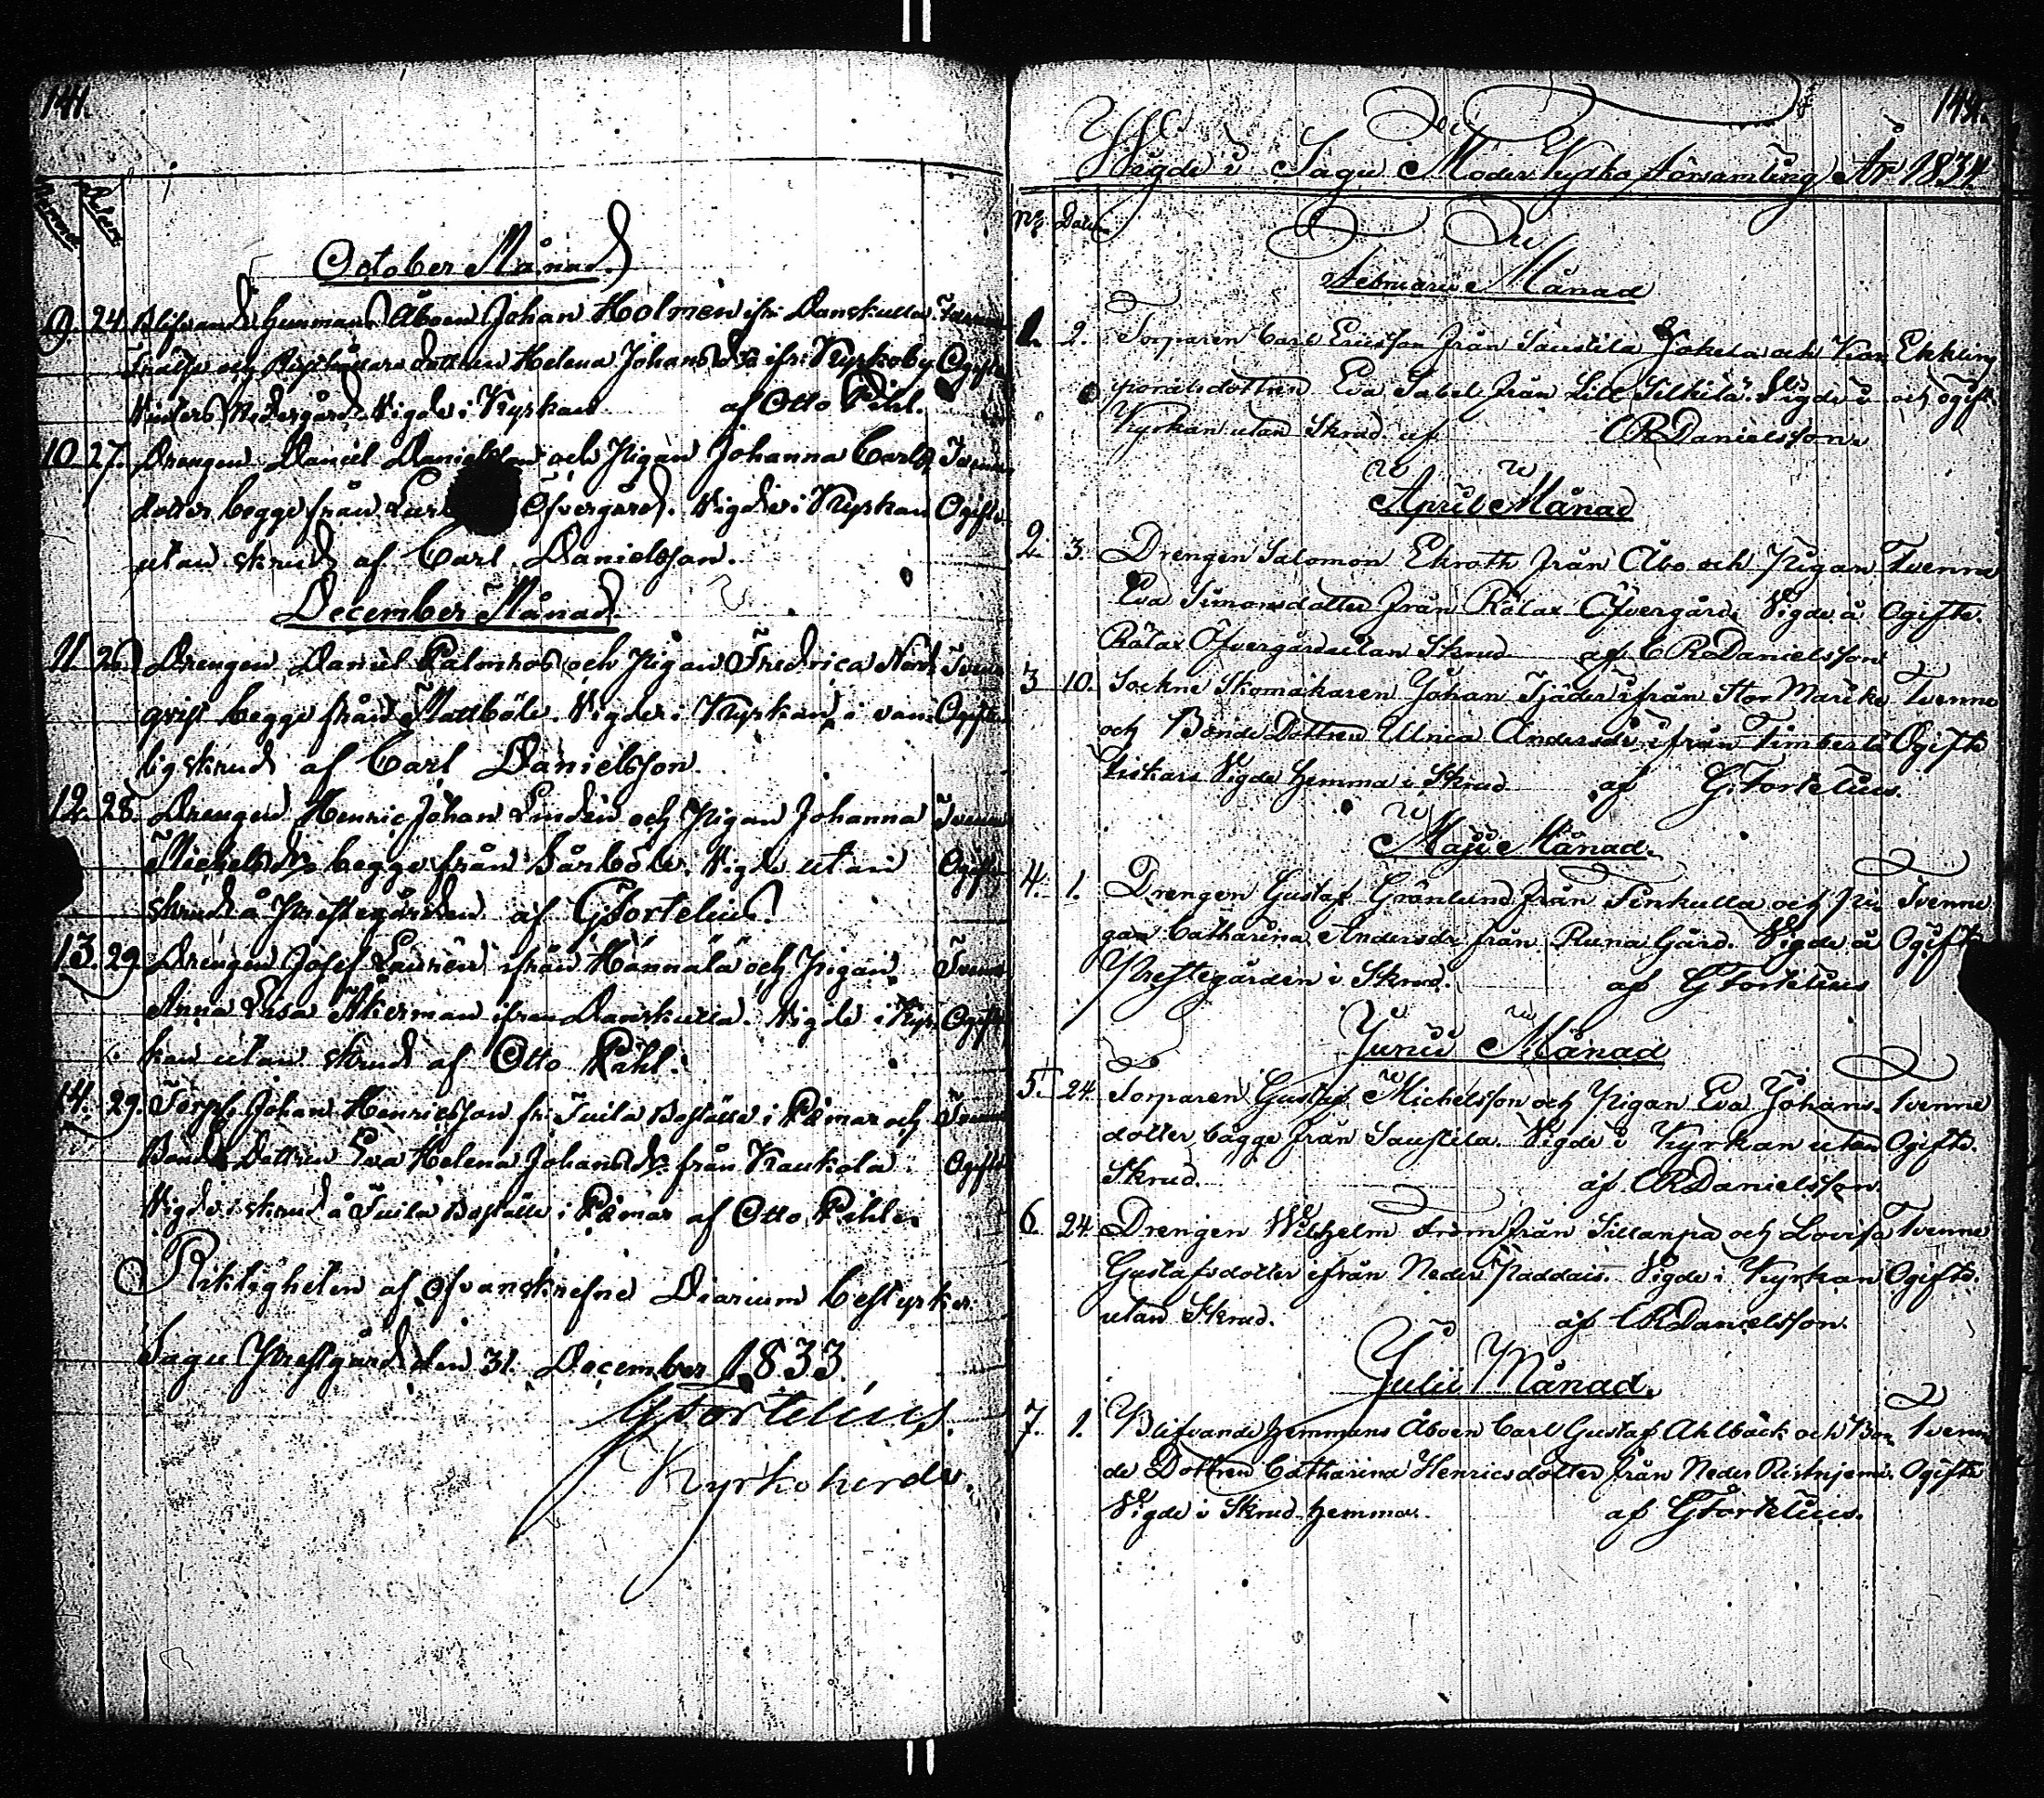 141.
October Månad.
9. 24. Blifvande Hemmans Åboen Johan Holmén ifr: Danskulla Tvenne
och Rusthållare dottren Helena Johansdr ifr: Kyrkoby Ogifte
Nedergård. Vigde i Kyrkan af Otto Pihl.
10. 27. Drengen Daniel Danielsson och Pigan Johanna Carls Tvenne
dotter begge från Öfvergård. Vigde i Kyrkan Ogifte
utan skrud af Carl Danielsson.
December Månad.
11. 26. Drengen Daniel Palmros och Pigan Fredrica Nord Tvenne
qvist begge från Mattböle. Vigde i Kyrkan i van Ogifte
lig skrud af Carl Danielsson.
12. 28. Drengen Henric Johan Lindén och Pigan Johanna Tvenne
Michelsdr begge från Sårböle. Vigde utan Ogifte
skrud å Prestegården af GFortelius.
13. 29. Drengen Josef Laurén ifrån Hännälä och Pigan Tvenne
Anna Lisa Åkerman ifrån Danskulla. Vigde i Kyr Ogifte
kan utan skrud af Otto Pihl.
14. 29. Torp: Johan Henricsson fr: Tuila Boställe i Pemar och Tvenne
Bonde Dottren Eva Helena Johansdr från Kaukola Ogifte
Vigde i skrud å Tuila Boställe i Pemar af Otto Pihl.
Riktigheten af ofvanskrefne Diarium bestyrker.
Sagu Prestgård den 31. December 1833.
GFortelius.
Kyrkoherde.
Vigde i Sagu Moder Kyrko församling År 1834.
No Datum
Februarii Månad
1. 2. Torparen Carl Ericsson från Saustila Jokela och Kor Ekkling
poralsdottren Eva Sabel från Lill Silkilä. Vigde i och ogift
Kyrkan utan Skrud af CRDanielsson.
April Månad
2. 3. Drengen Salomon Ekroth från Åbo och Pigan Tvenne
Eva Simonsdotter från Rålax Öfvergård. Vigde å Ogifte.
Rålax Öfvergård utan Skrud af CRDanielsson
3 10. Sockne Skomakaren Johan Tjäder ifrån Stor Marike Tvenne
och Bonde Dottren Ulrica Andersdr ifrån Timberla Ogifte
Piskars Vigde hemma i Skrud af G.Fortelius.
Maji Månad.
4. 1. Drengen Gustaf Grönlund från Finkulla och Pi Tvenne
gan Catharina Andersdr från Runa Gård. Vigde å Ogifte
Prestegården i Skrud. af GFortelius
Junii Månad
5. 24. Torparen Gustaf Michelsson och Pigan Eva Johans Tvenne
dotter bägge från Saustila. Vigde i Kyrkan utan Ogifte.
Skrud. af CRDanielsson.
6. 24. Drengen Wilhelm Ström från Sillanpä och Lovisa Tvenne
Gustafsdotter ifrån Neder Paddais. Vigde i Kyrkan Ogifte.
utan Skrud. af CRDanielsson.
Julii Månad.
7. 1. Blifvande hemmans Åboen Carl Gustaf Ahlbäck och Bon Tvenne
de Dottren Catharina Henricsdotter från Neder Ristnjemi. Ogifte
Vigde i Skrud hemma. af GFortelius.